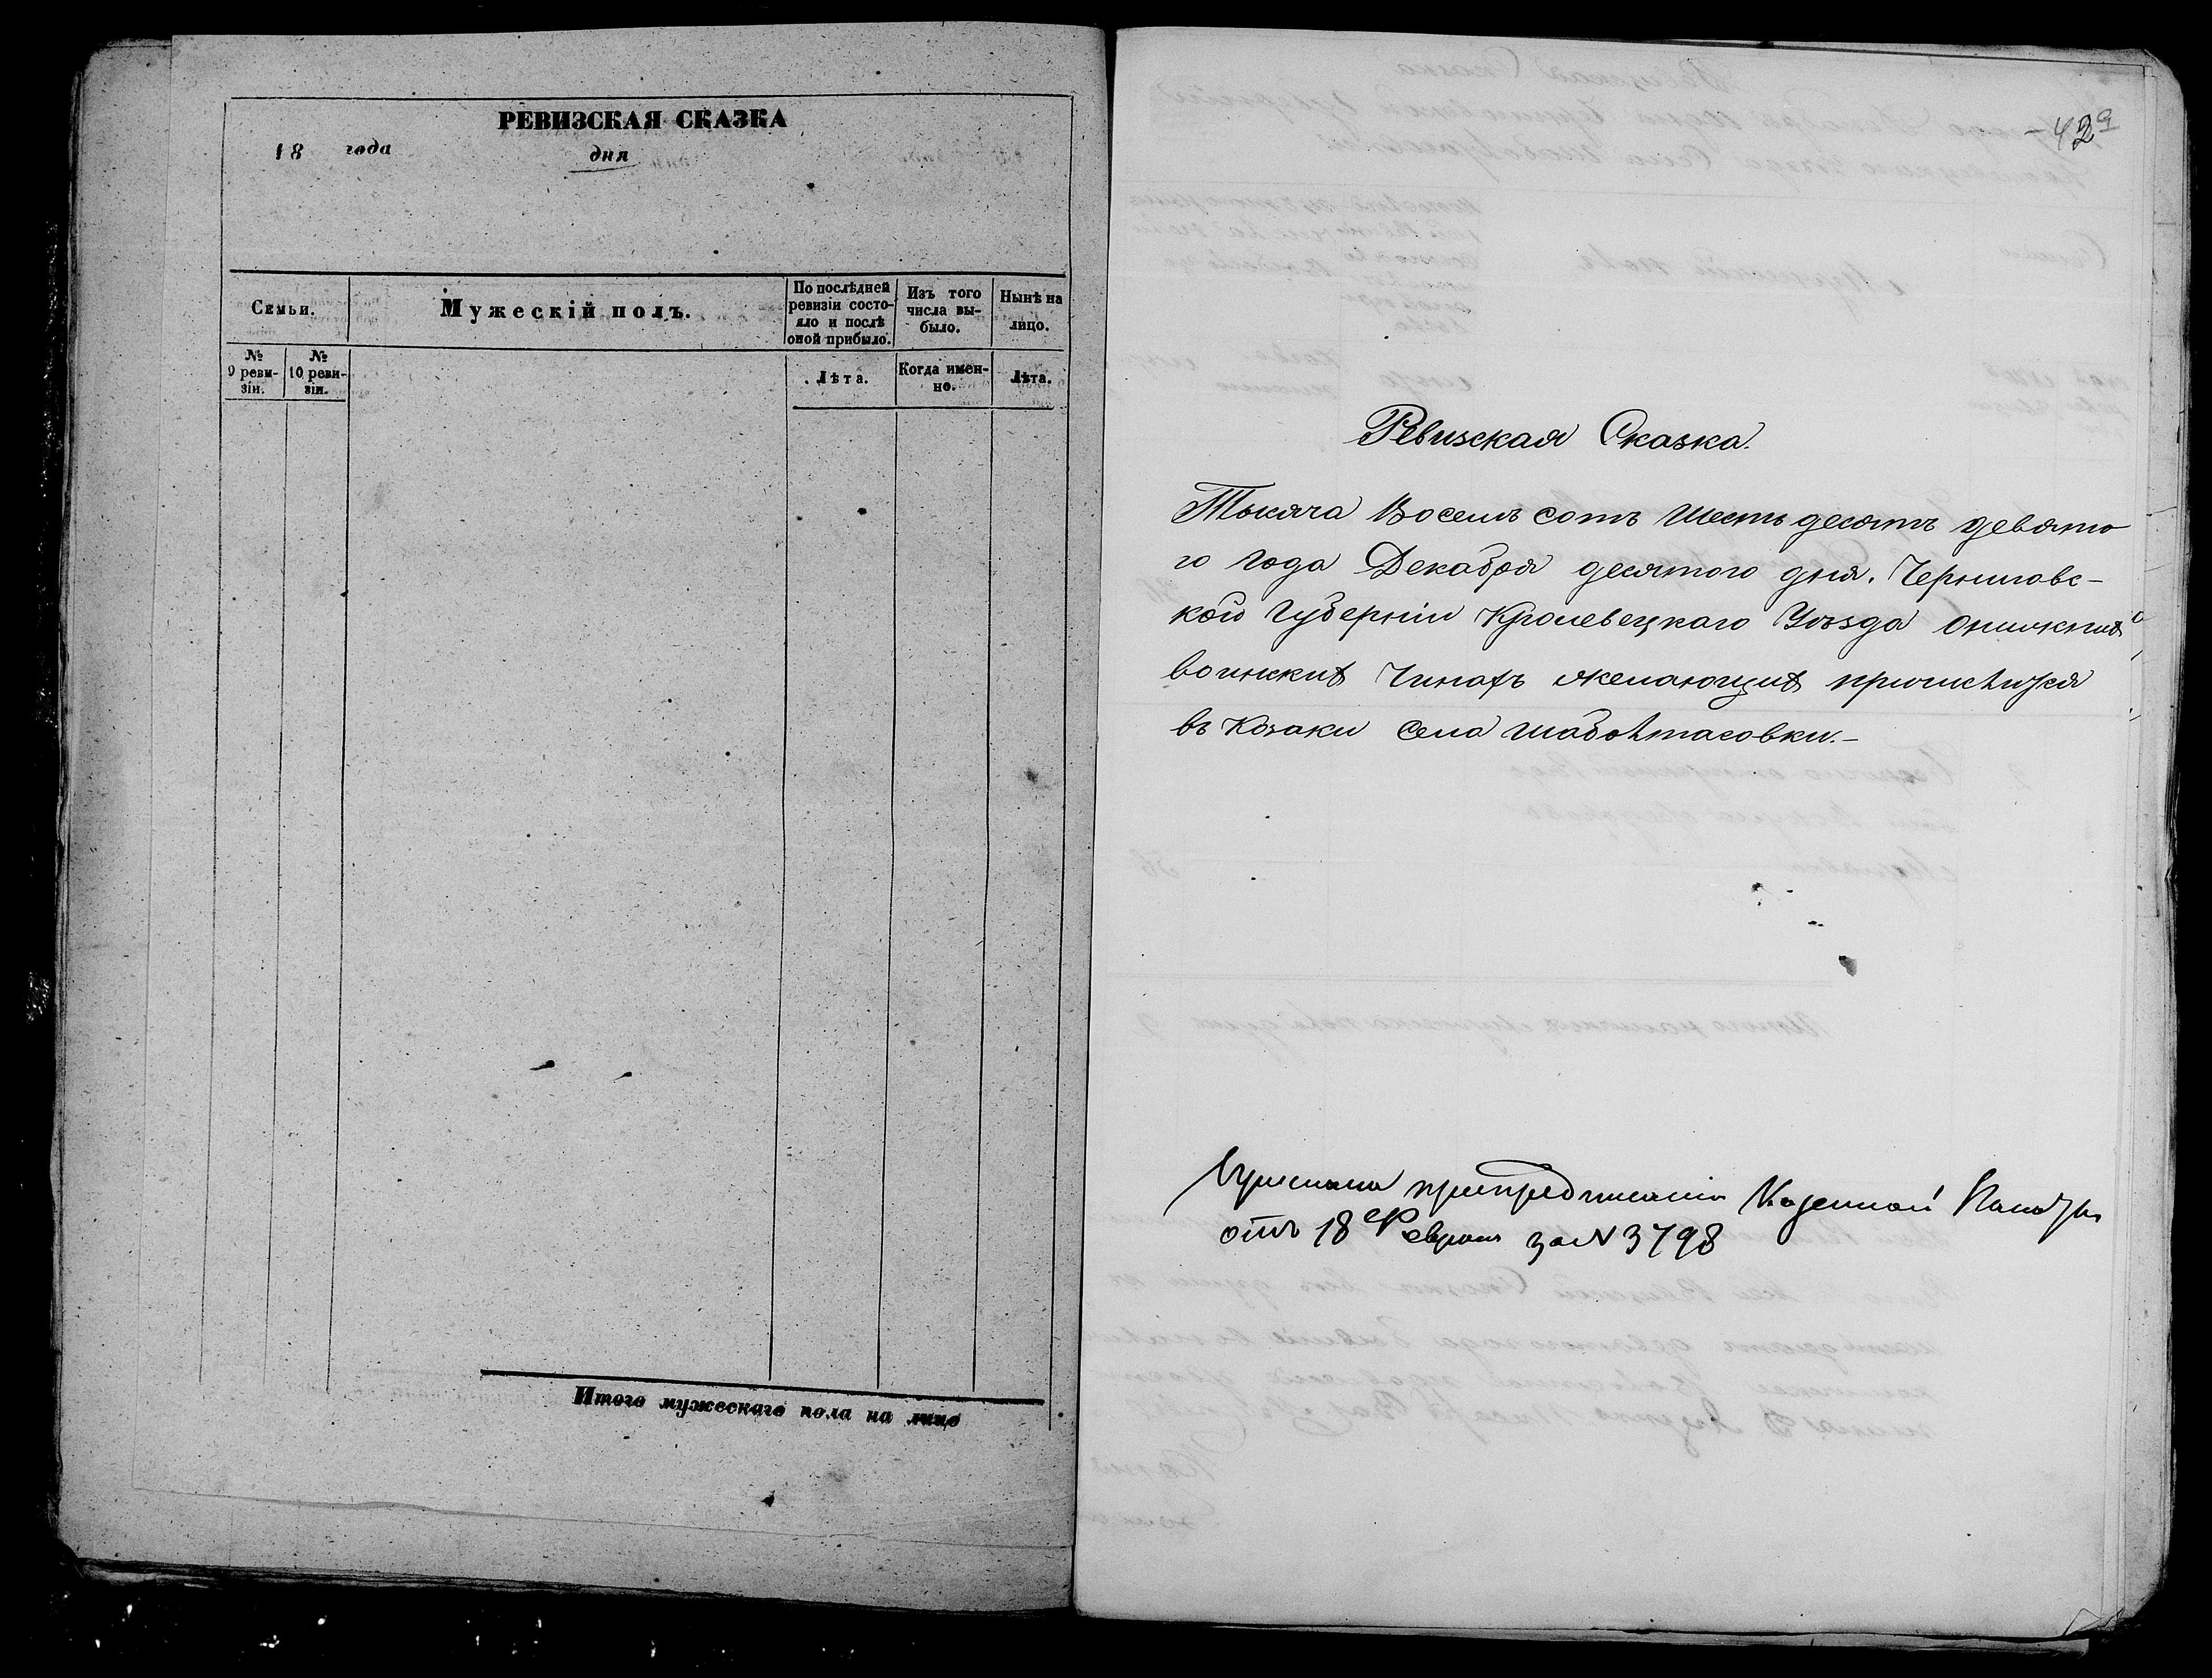 РЕВИЗСКАЯ СКАЗКА
18 года дня
Семьи.
Мужескій полъ.
По послѣдней ревизіи состо-
яло и послѣ
оной прибыло.
Изъ того
числа вы-
было.
Нынѣ на
лицо.
№
9 реви-
зіи.
№
10 реви-
зіи.
Лѣта.
Когда имен-
но.
Лѣта.
Итого мужескаго пола на лицо
42
Ревизская Сказка.
Тысяча Восемь сотъ шесть десятъ девято
го года Декабря десятого дня. Черниговс-
кой Губерніи Кролевецкаго Уѣзда
воинскихъ Чиновъ желающихъ
въ Козаки села
Казенной Палаты
отъ 18 Февраля за N 3798